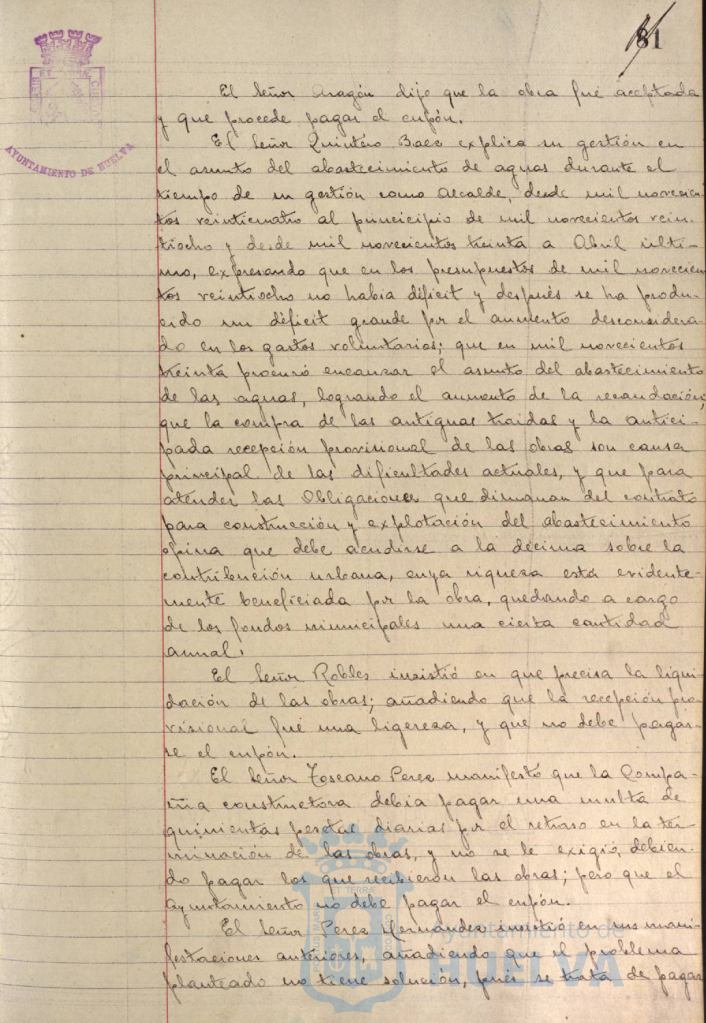 81
AYUNTAMIENTO DE HUELVA
El Señor Aragón dijo que la obra fué aceptada
y que procede pagar el cupón.
El Señor Quintero Baez explica su gestión en
el asunto del abastecimiento de aguas durante el
tiempo de su gestión como Alcalde, desde mil novecien-
tos veinticuatro al principio de mil novecientos vein-
tiocho y desde mil novecientos treinta a Abril últi-
mo, expresando que en los presupuestos de mil novecien
tos veintiocho no había déficit y después se ha produ-
cido un déficit grande por el aumento desconsidera-
do en los gastos voluntarios; que en mil novecientos
treinta procuró encauzar el asunto del abastecimiento
de las aguas, logrando el aumento de la recaudación;
que la compra de las antiguas traidas y la antici-
pada recepción provisional de las obras son causa
principal de las dificultades actuales, y que para
atender las Obligaciones que dimanan del contrato
para construcción y explotación del abastecimiento
opina que debe acudirse a la décima sobre la
contribución urbana, cuya riqueza está evidente-
mente beneficiada por la obra, quedando a cargo
de los fondos municipales una cierta cantidad
anual.
El Señor Robles insistió en que precisa la liqui-
dación de las obras; añadiendo que la recepción pro-
visional fué una ligereza, y que no debe pagar-
se el cupón.
El Señor Toscano Perez manifestó que la Compa-
ñia constructora debia pagar una multa de
quinientas pesetas diarias por el retraso en la ter-
minación de las obras, y no se le exigió, debien-
do pagar los que recibieron las obras; pero que el
Ayuntamiento no debe pagar el cupón.
El Señor Perez Hernández insistió en sus mani-
festaciones anteriores, añadiendo que el problema
planteado no tiene solución, pués se trata de pagar
Ayuntamiento de
HUELVA